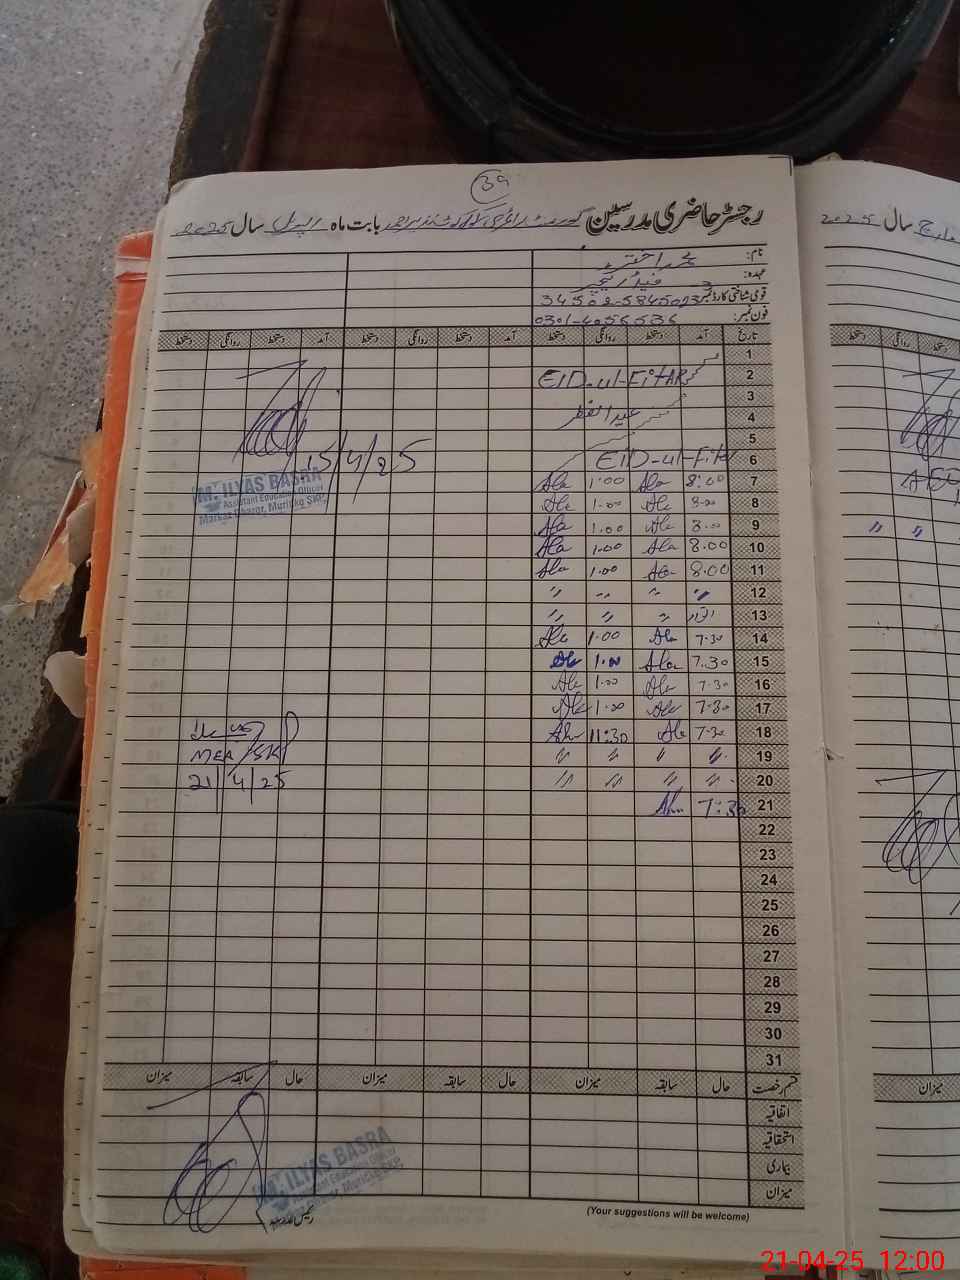 39
رجسٹر حاضری مدرسین گورنمنٹ بابت ماہ اپریل سال 2025
نام:
عہدہ: ٹیچر
قومی شناختی کارڈ نمبر 34502-5845023-3
فون نمبر: 0301-4056536
تاریخ آمد دستخط روانگی دستخط آمد دستخط روانگی دستخط آمد دستخط روانگی دستخط
1
2 EID-ul-FitAR
3
4 عید الفطر
5
6 EID-ul-Fit
7 8:00 Ala 1.00 Ala
8 8.00 Ale 1.00 Ale
9 8.00 Ale 1.00 Ala
10 8.00 Ala 1.00 Ala
11 8.00 Ala 1.00 Ala
12 〃 〃 〃 〃
13 اتوار 〃 〃 〃
14 7.30 Ala 1.00 Ale
15 7.30 Ala 1.00 Ale
16 7.30 Ale 1.00 Ale
17 7.30 Ale 1.00 Ale
18 7.30 Ale 11:30 Ahr
19 〃 〃 〃 〃
20 〃 〃 〃 〃
21 7:30 Ahr
22
23
24
25
26
27
28
29
30
31
15/4/25
M. ILYAS BASRA
Assistant Education Officer
Markaz Kharor, Muridke SKP
MEA/SKP
21/4/25
قسم رخصت حال سابقہ میزان حال سابقہ میزان حال سابقہ میزان
اتفاقیہ
استحقاقیہ
بیماری
میزان
M. ILYAS BASRA
Assistant Education Officer
رئیس مدرسہ
(Your suggestions will be welcome)
مارچ سال 2025
دستخط روانگی دستخط
AEO
〃 〃
میزان
21-04-25 12:00